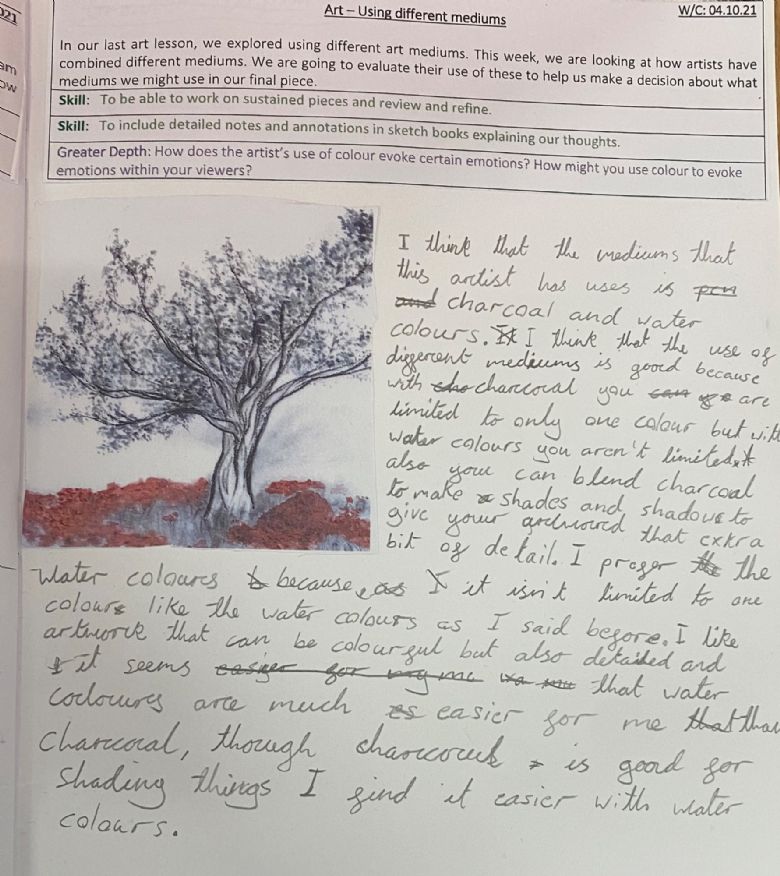 021
am
ow
Art – Using different mediums
W/C: 04.10.21
In our last art lesson, we explored using different art mediums. This week, we are looking at how artists have
combined different mediums. We are going to evaluate their use of these to help us make a decision about what
mediums we might use in our final piece.
Skill: To be able to work on sustained pieces and review and refine.
Skill: To include detailed notes and annotations in sketch books explaining our thoughts.
Greater Depth: How does the artist's use of colour evoke certain emotions? How might you use colour to evoke
emotions within your viewers?
I think that the mediums that
this artist has uses is pen
and charcoal and water
colours. It I think that the use of
different mediums is good because
with cha charcoal you can are
limited to only one colour but with
water colours you aren't limited.
also you can blend charcoal
to make shades and shadows to
give your that extra
bit of detail. I prefer the
Water colours because I it isn't limited to one
colours like the water colours as I said before. I like
artwork that can be colourful but also detailed and
it seems easier for my me that water
are much easier for me that than
charcoal, though is good for
shading things I find it easier with water
colours.